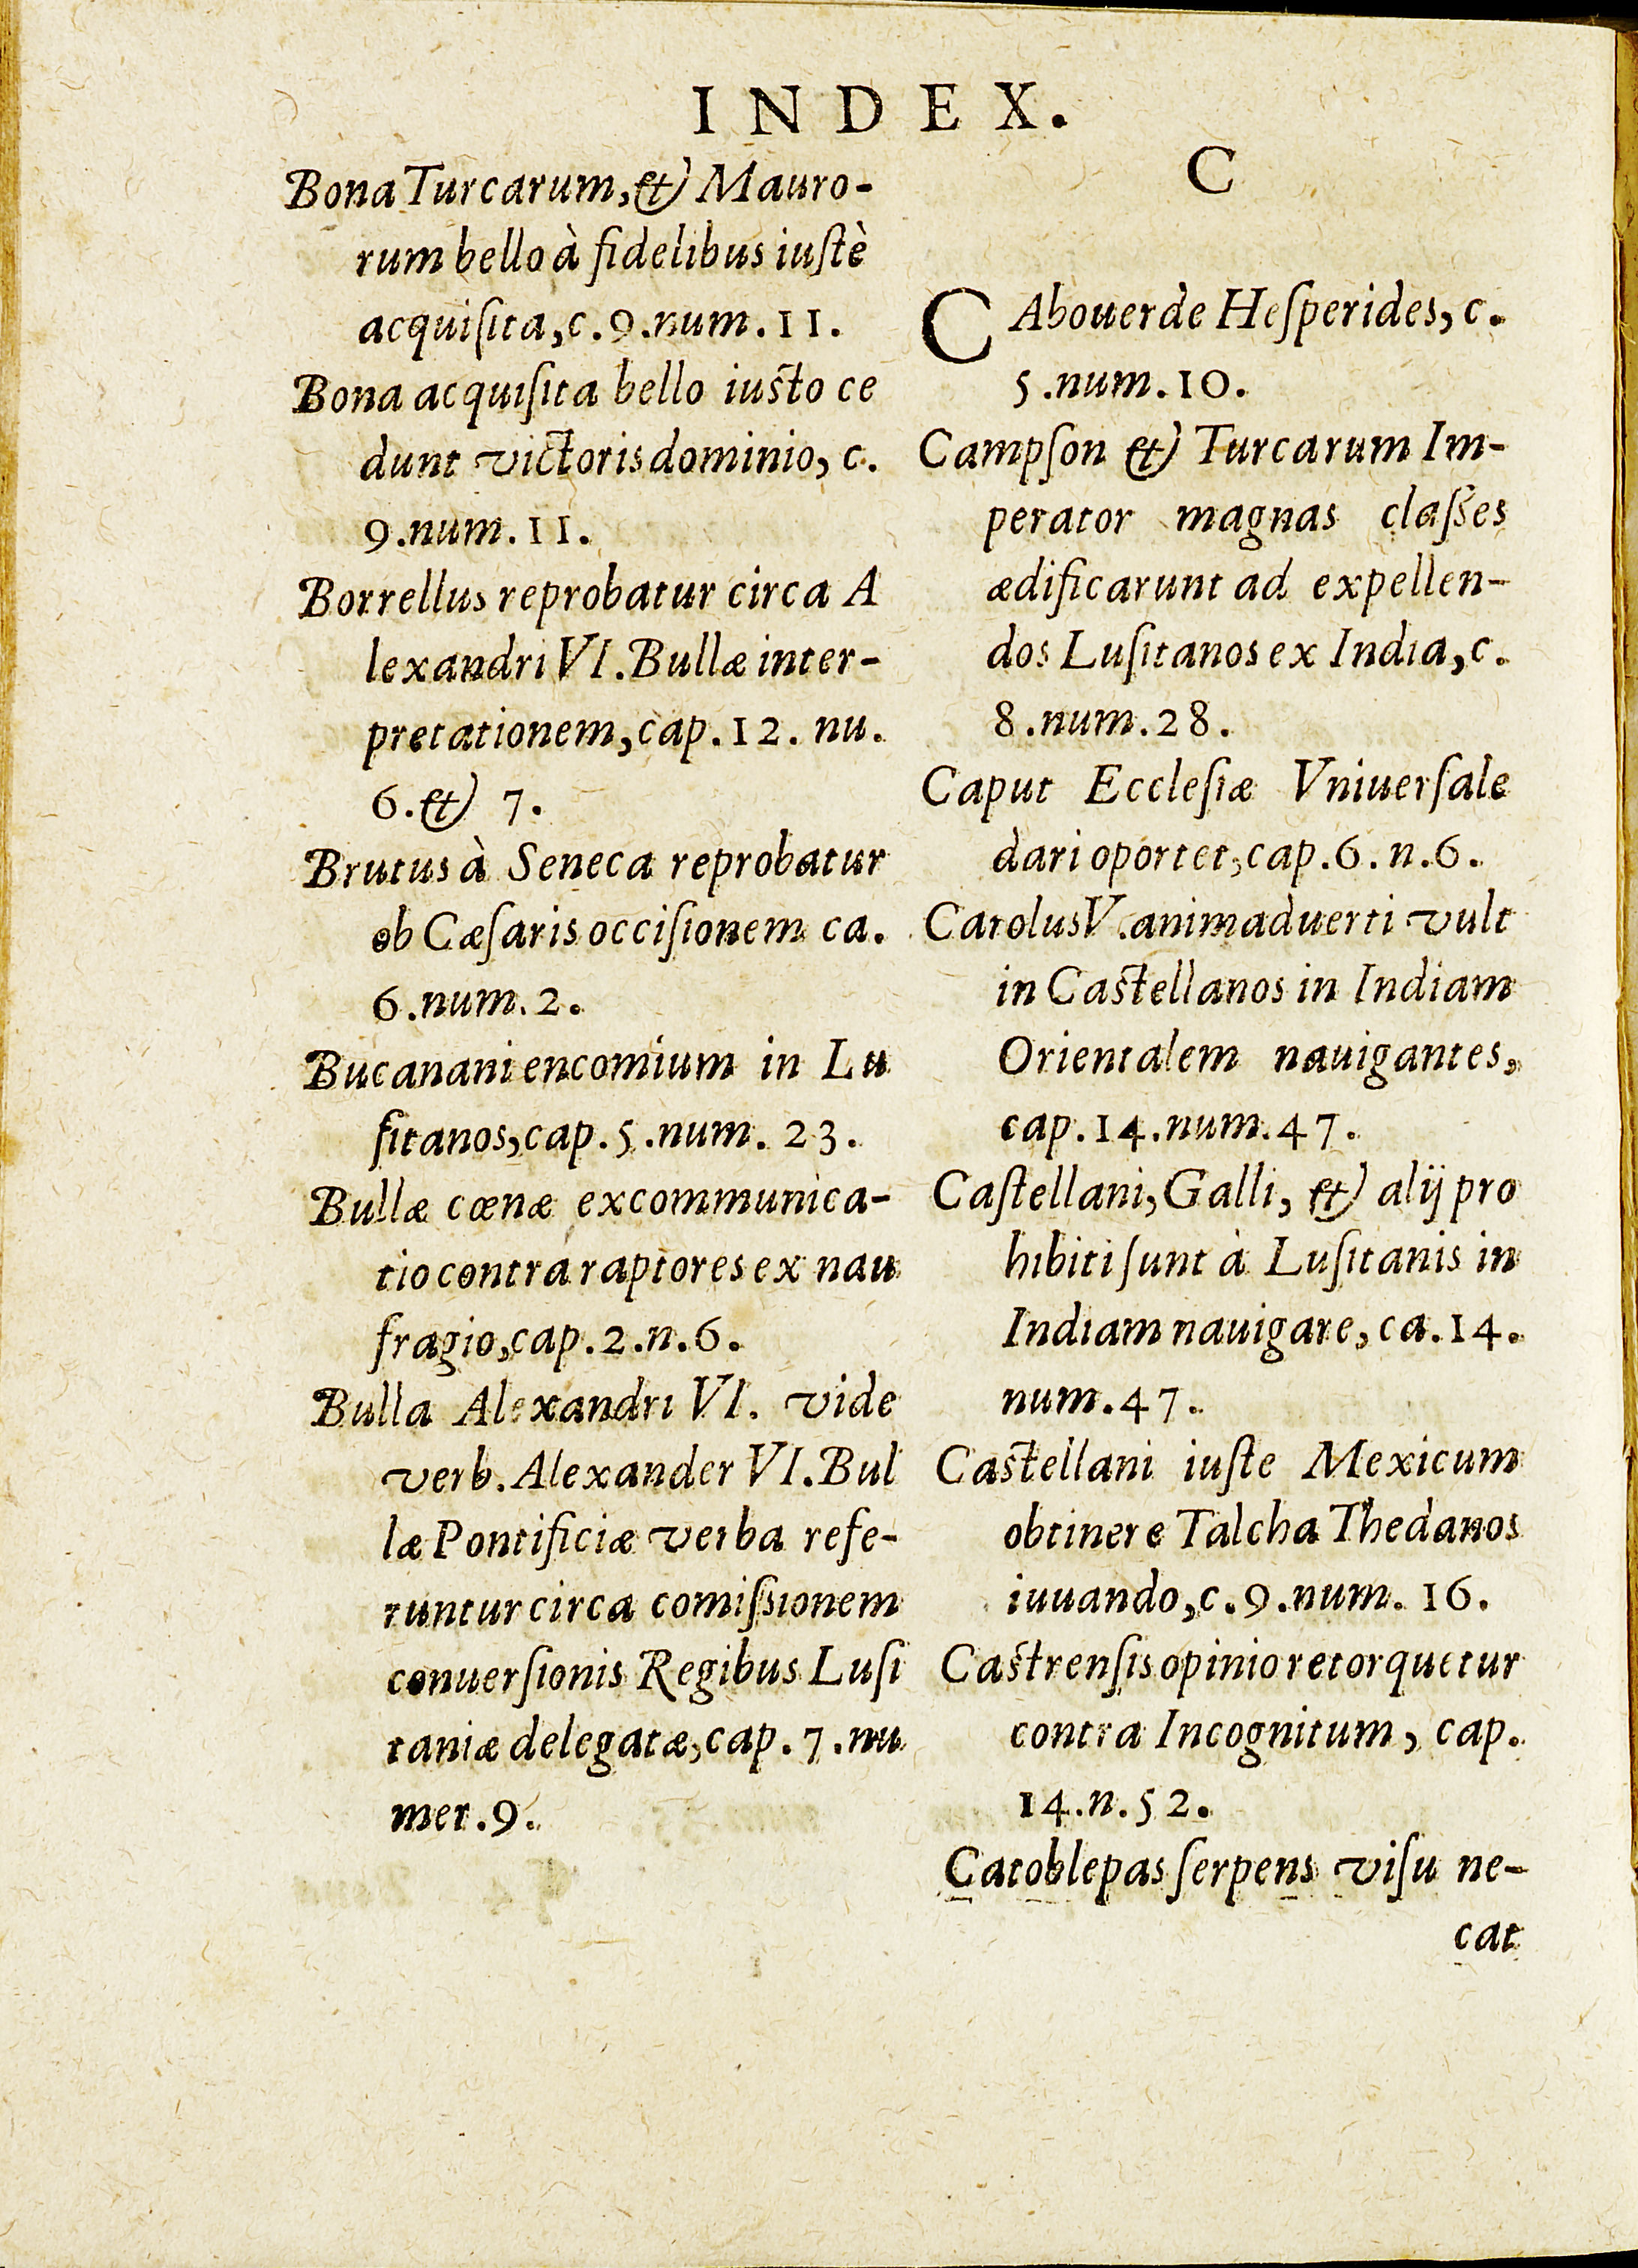 INDEX.
Bona Turcarum, & Mauro-
rum bello à fidelibus iuſtè
acquiſita, c. 9. num. 11.
Bona acquiſita bello iuſto ce
dunt victoris dominio, c.
9. num. 11.
Borrellus reprobatur circa A
lexandri VI. Bullæ inter-
pretationem, cap. 12. nu.
6. & 7.
Brutus à Seneca reprobatur
ob Cæſaris occiſionem ca.
6. num. 2.
Bucanani encomium in Lu
ſitanos, cap. 5. num. 23.
Bullæ cœnæ excommunica-
tio contra raptores ex nau
fragio, cap. 2. n. 6.
Bulla Alexandri VI. vide
verb. Alexander VI. Bul
læ Pontificiæ verba refe-
runtur circa comiſsionem
conuerſionis Regibus Luſi
taniæ delegatæ, cap. 7. nu
mer. 9.
C
CAbouerde Heſperides, c.
5. num. 10.
Campſon & Turcarum Im-
perator magnas claſses
ædificarunt ad expellen-
dos Luſitanos ex India, c.
8. num. 28.
Caput Eccleſiæ Vniuerſale
dari oportet, cap. 6. n. 6.
Carolus V. animaduerti vult
in Caſtellanos in Indiam
Orientalem nauigantes,
cap. 14. num. 47.
Caſtellani, Galli, & alij pro
hibiti ſunt à Luſitanis in
Indiam nauigare, ca. 14.
num. 47.
Caſtellani iuſte Mexicum
obtinere Talcha Thedanos
iuuando, c. 9. num. 16.
Caſtrenſis opinio retorquetur
contra Incognitum, cap.
14. n. 52.
Catoblepas ſerpens viſu ne-
cat